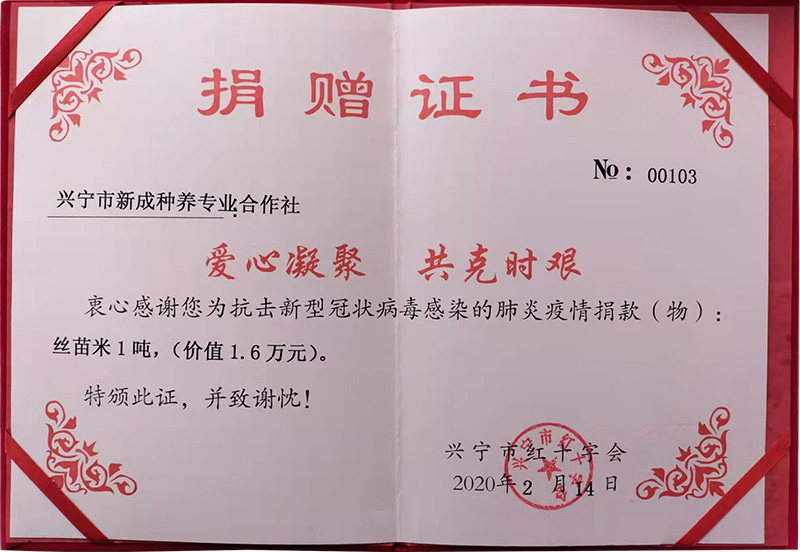 捐赠证书
№：00103
兴宁市新成种养专业合作社：
爱心凝聚 共克时艰
衷心感谢您为抗击新型冠状病毒感染的肺炎疫情捐款（物）：
丝苗米1吨，（价值1.6万元）。
特颁此证，并致谢忱！
兴宁市红十字会
2020年2月14日
兴宁市红十字会